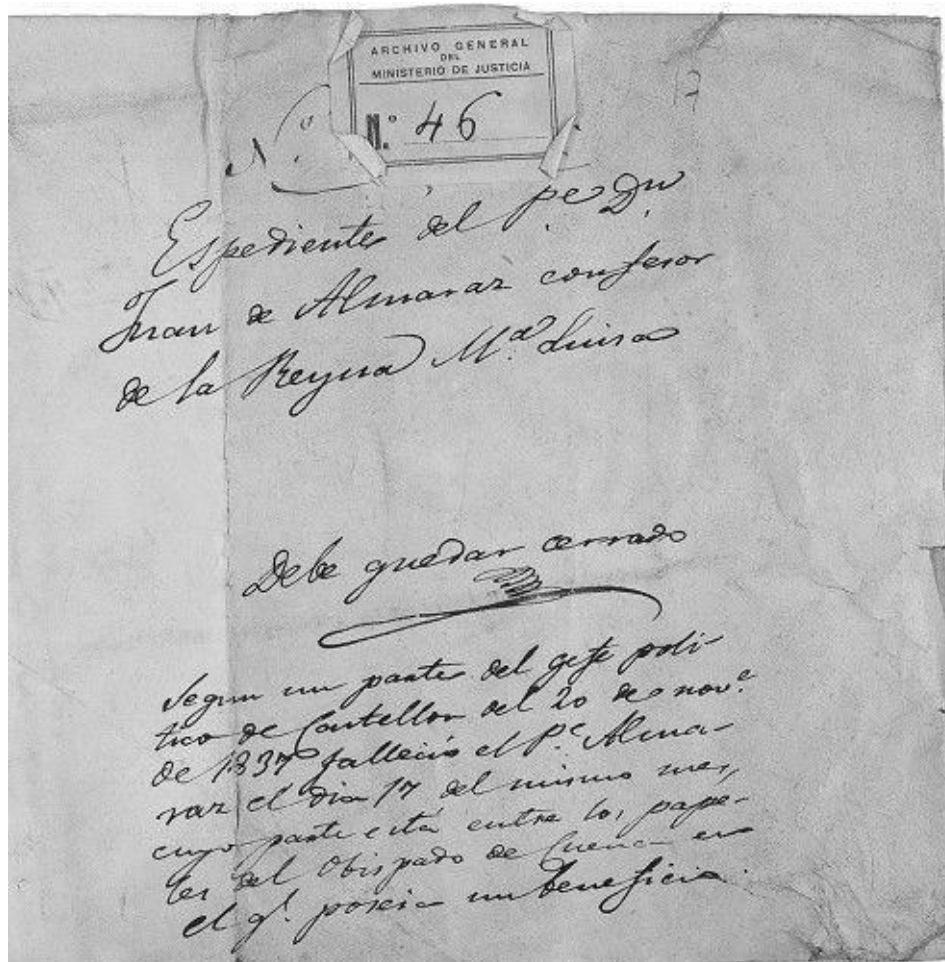 ARCHIVO GENERAL
DEL
MINISTERIO DE JUSTICIA
N.º 46
17
N.º
Espediente del P.e D.n
Juan de Almaraz confesor
de la Reyna M.a Luisa
Debe quedar cerrado
Segun un parte del gefe poli-
tico de Castellon del 20 de nov.e
de 1837 fallecio el P.e Alma-
raz el dia 17 del mismo mes,
cuyo parte está entre los pape-
les del Obispado de Cuenca en
el q.l poseia un beneficio.